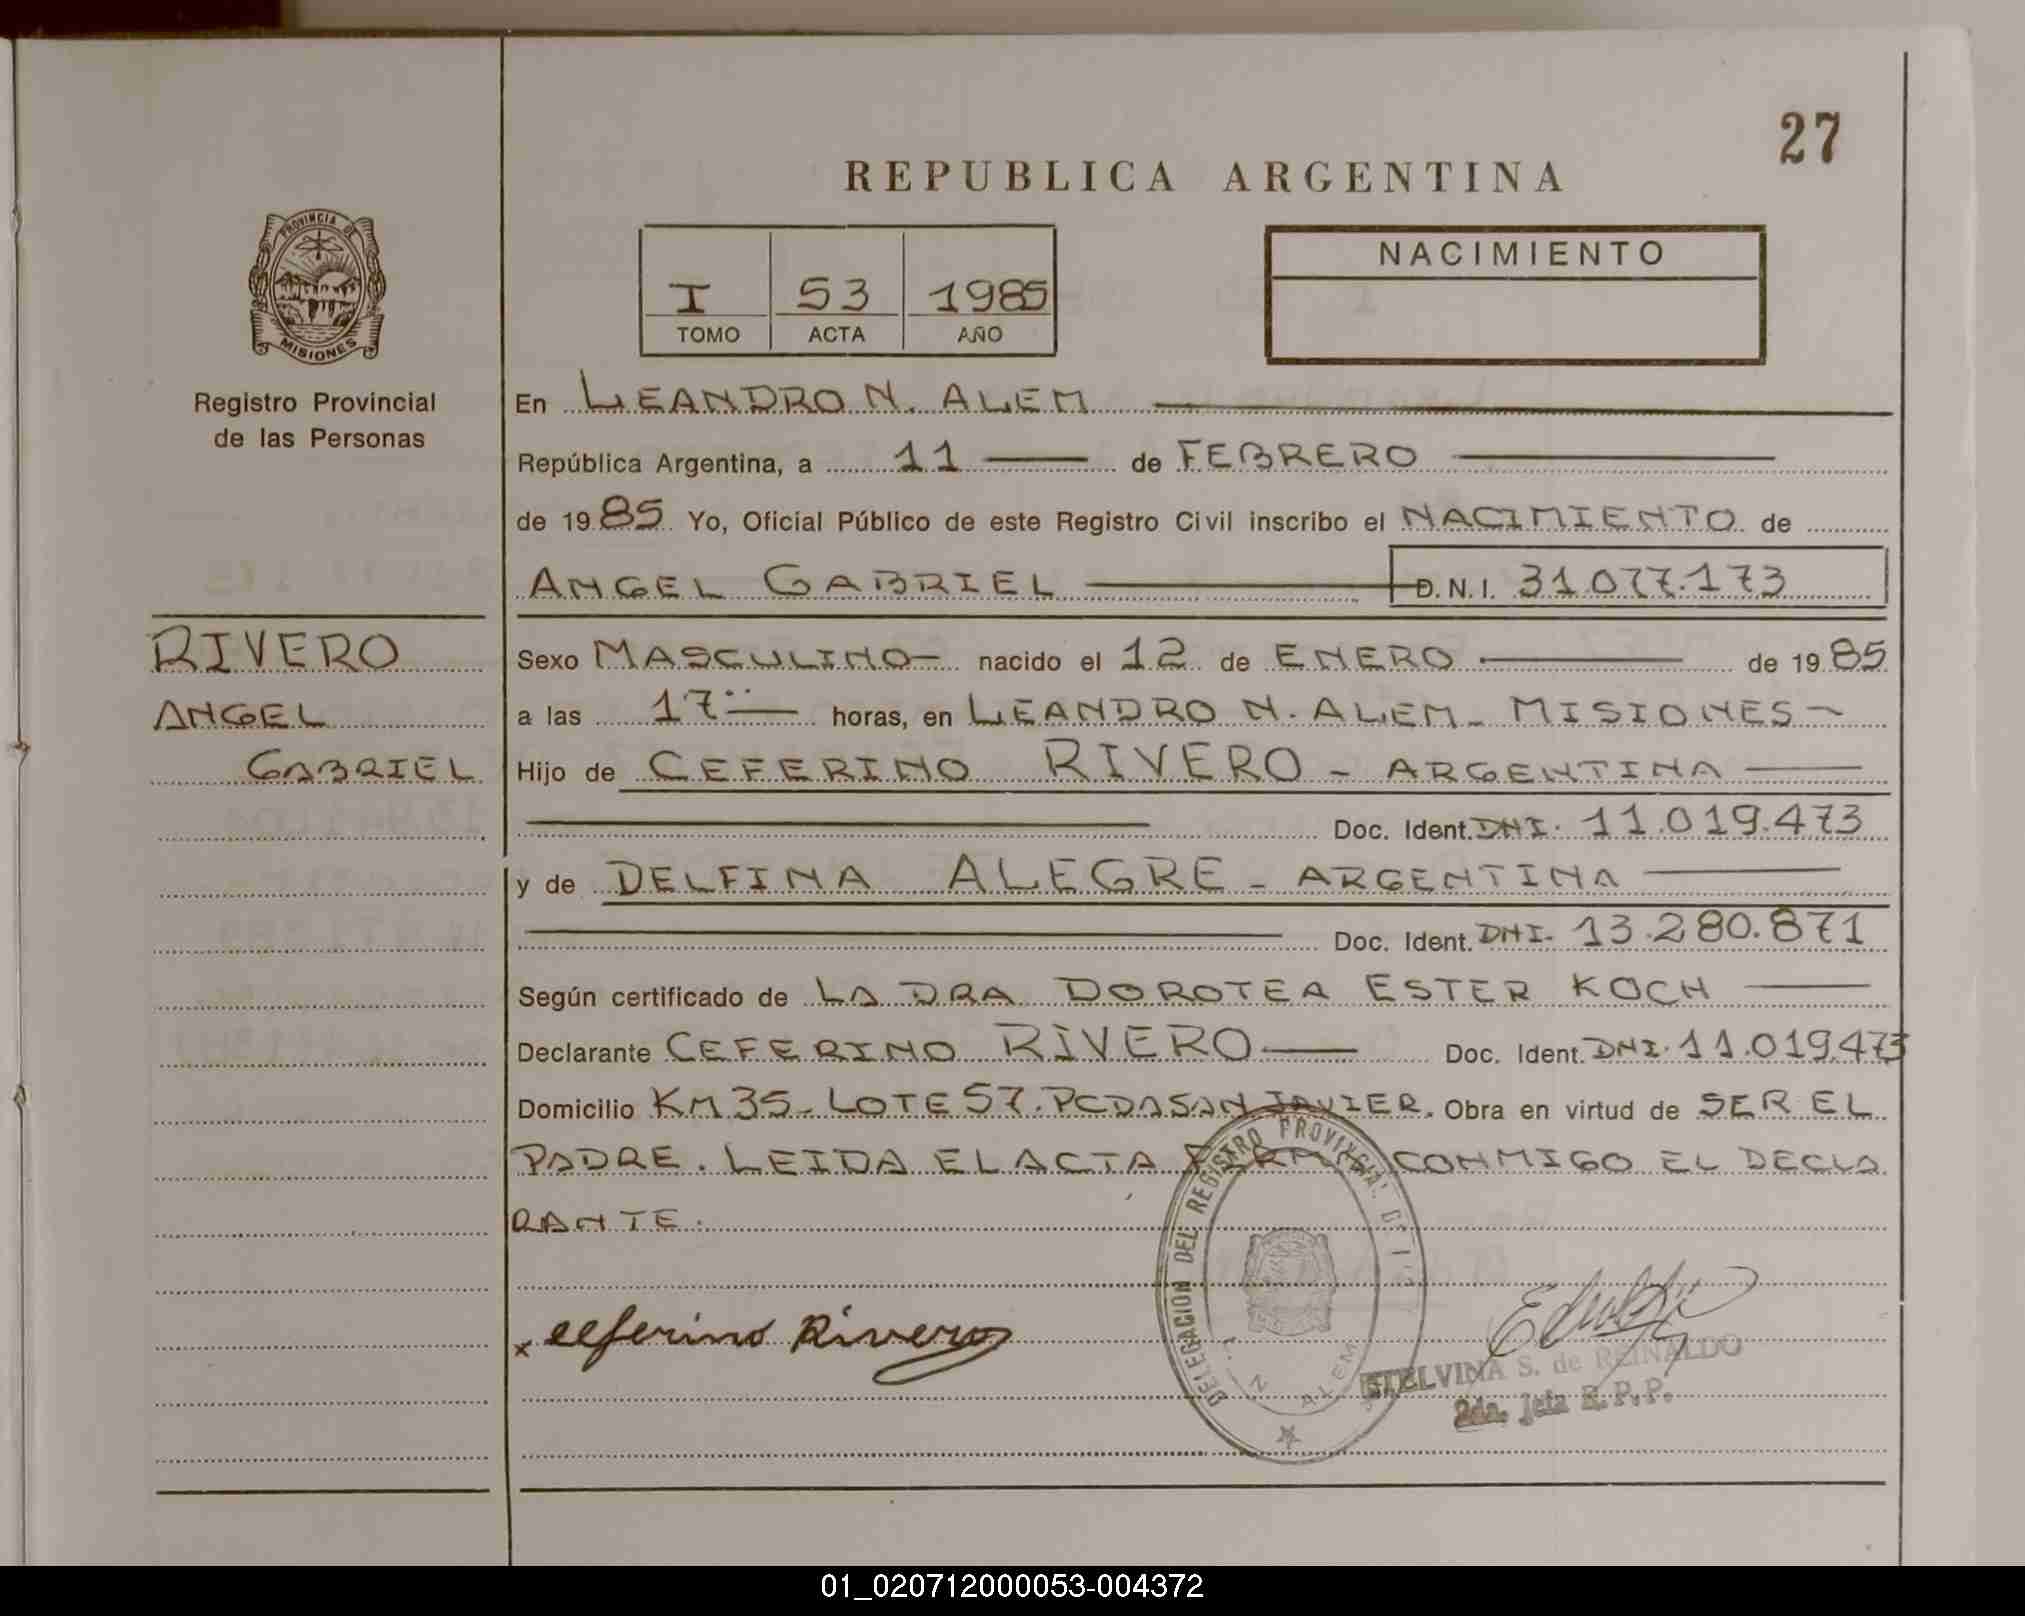 27
REPUBLICA ARGENTINA
PROVINCIA DE
MISIONES
Registro Provincial
de las Personas
I 53 1985
TOMO ACTA AÑO
NACIMIENTO
En LEANDRO N. ALEM
República Argentina, a 11 de FEBRERO
de 1985 Yo, Oficial Público de este Registro Civil inscribo el NACIMIENTO de
ANGEL GABRIEL D.N.I. 31.077.173
RIVERO
ANGEL
GABRIEL
Sexo MASCULINO- nacido el 12 de ENERO de 1985
a las 17 horas, en LEANDRO N. ALEM - MISIONES -
Hijo de CEFERINO RIVERO - ARGENTINA
Doc. Ident. DNI. 11.019.473
y de DELFINA ALEGRE - ARGENTINA
Doc. Ident. DNI. 13.280.871
Según certificado de LA DRA DOROTEA ESTER KOCH
Declarante CEFERINO RIVERO Doc. Ident. DNI. 11.019.473
Domicilio KM 35 - LOTE 57. PCDA SAN JAVIER. Obra en virtud de SER EL
PADRE. LEIDA EL ACTA FIRMA CONMIGO EL DECLA
RANTE.
x Ceferino Rivero
DELEGACION DEL REGISTRO PROVINCIAL DE
N. ALEM
ETELVINA S. de REINALDO
2da. Jefa R.P.P.
01_020712000053-004372